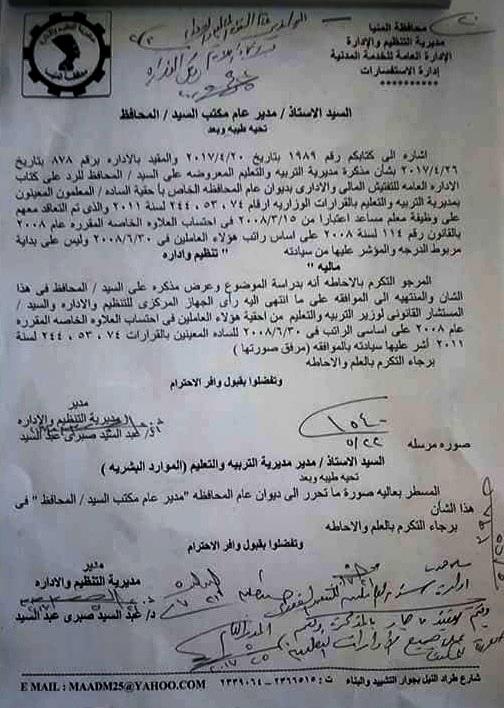 محافظة المنيا
مديرية التنظيم والإدارة
الإدارة العامة للخدمة المدنية
إدارة الاستفسارات
**********
السيد الاستاذ / مدير عام مكتب السيد / المحافظ
تحيه طيبه وبعد
اشاره الى كتابكم رقم ١٩٨٩ بتاريخ ٢٠١٧/٤/٢٠ والمقيد بالاداره برقم ٨٧٨ بتاريخ
٢٠١٧/٤/٢٦ بشأن مذكرة مديرية التربيه والتعليم المعروضه على السيد / المحافظ للرد على كتاب
الاداره العامه للتفتيش المالى والادارى بديوان عام المحافظه الخاص بأحقية الساده / المعلمون المعينون
بمديرية التربيه والتعليم بالقرارات الوزاريه ارقام ٧٤ ، ٥٣ ، ٢٤٤ لسنة ٢٠١١ والذى تم التعاقد معهم
على وظيفة معلم مساعد اعتبارا من ٢٠٠٨/٣/١٥ فى احتساب العلاوه الخاصه المقرره عام ٢٠٠٨
بالقانون رقم ١١٤ لسنة ٢٠٠٨ على اساس راتب هؤلاء العاملين فى ٢٠٠٨/٦/٣٠ وليس على بداية
مربوط الدرجه والمؤشر عليها من سيادته " تنظيم واداره
ماليه "
المرجو التكرم بالاحاطه أنه بدراسة الموضوع وعرض مذكره على السيد / المحافظ فى هذا
الشان والمنتهيه الى الموافقه على ما انتهى اليه رأى الجهاز المركزى للتنظيم والاداره والسيد /
المستشار القانونى لوزير التربيه والتعليم من احقية هؤلاء العاملين فى احتساب العلاوه الخاصه المقرره
عام ٢٠٠٨ على اساسى الراتب فى ٢٠٠٨/٦/٣٠ للساده المعينين بالقرارات ٧٤ ، ٥٣ ، ٢٤٤ لسنة
٢٠١١ أشر عليها سيادته بالموافقه ( مرفق صورتها )
برجاء التكرم بالعلم والاحاطه
وتفضلوا بقبول وافر الاحترام
مدير
مديرية التنظيم والإداره
د/ عبد السيد صبرى عبد السيد
١٥٤٠
٥/٢٢
صوره مرسله
السيد الاستاذ / مدير مديرية التربيه والتعليم (الموارد البشريه )
تحيه طيبه وبعد
المسطر بعاليه صورة ما تحرر الى ديوان عام المحافظه "مدير عام مكتب السيد / المحافظ " فى
هذا الشأن
برجاء التكرم بالعلم والاحاطه
وتفضلوا بقبول وافر الاحترام
مدير
مديرية التنظيم والاداره
د/ عبد السيد صبرى عبد السيد
شارع طراد النيل بجوار التشييد والبناء ت : ٢٣٦٦٥١٥ - ٢٣٣٩٠٦٤
E MAIL : MAADM25@YAHOO.COM